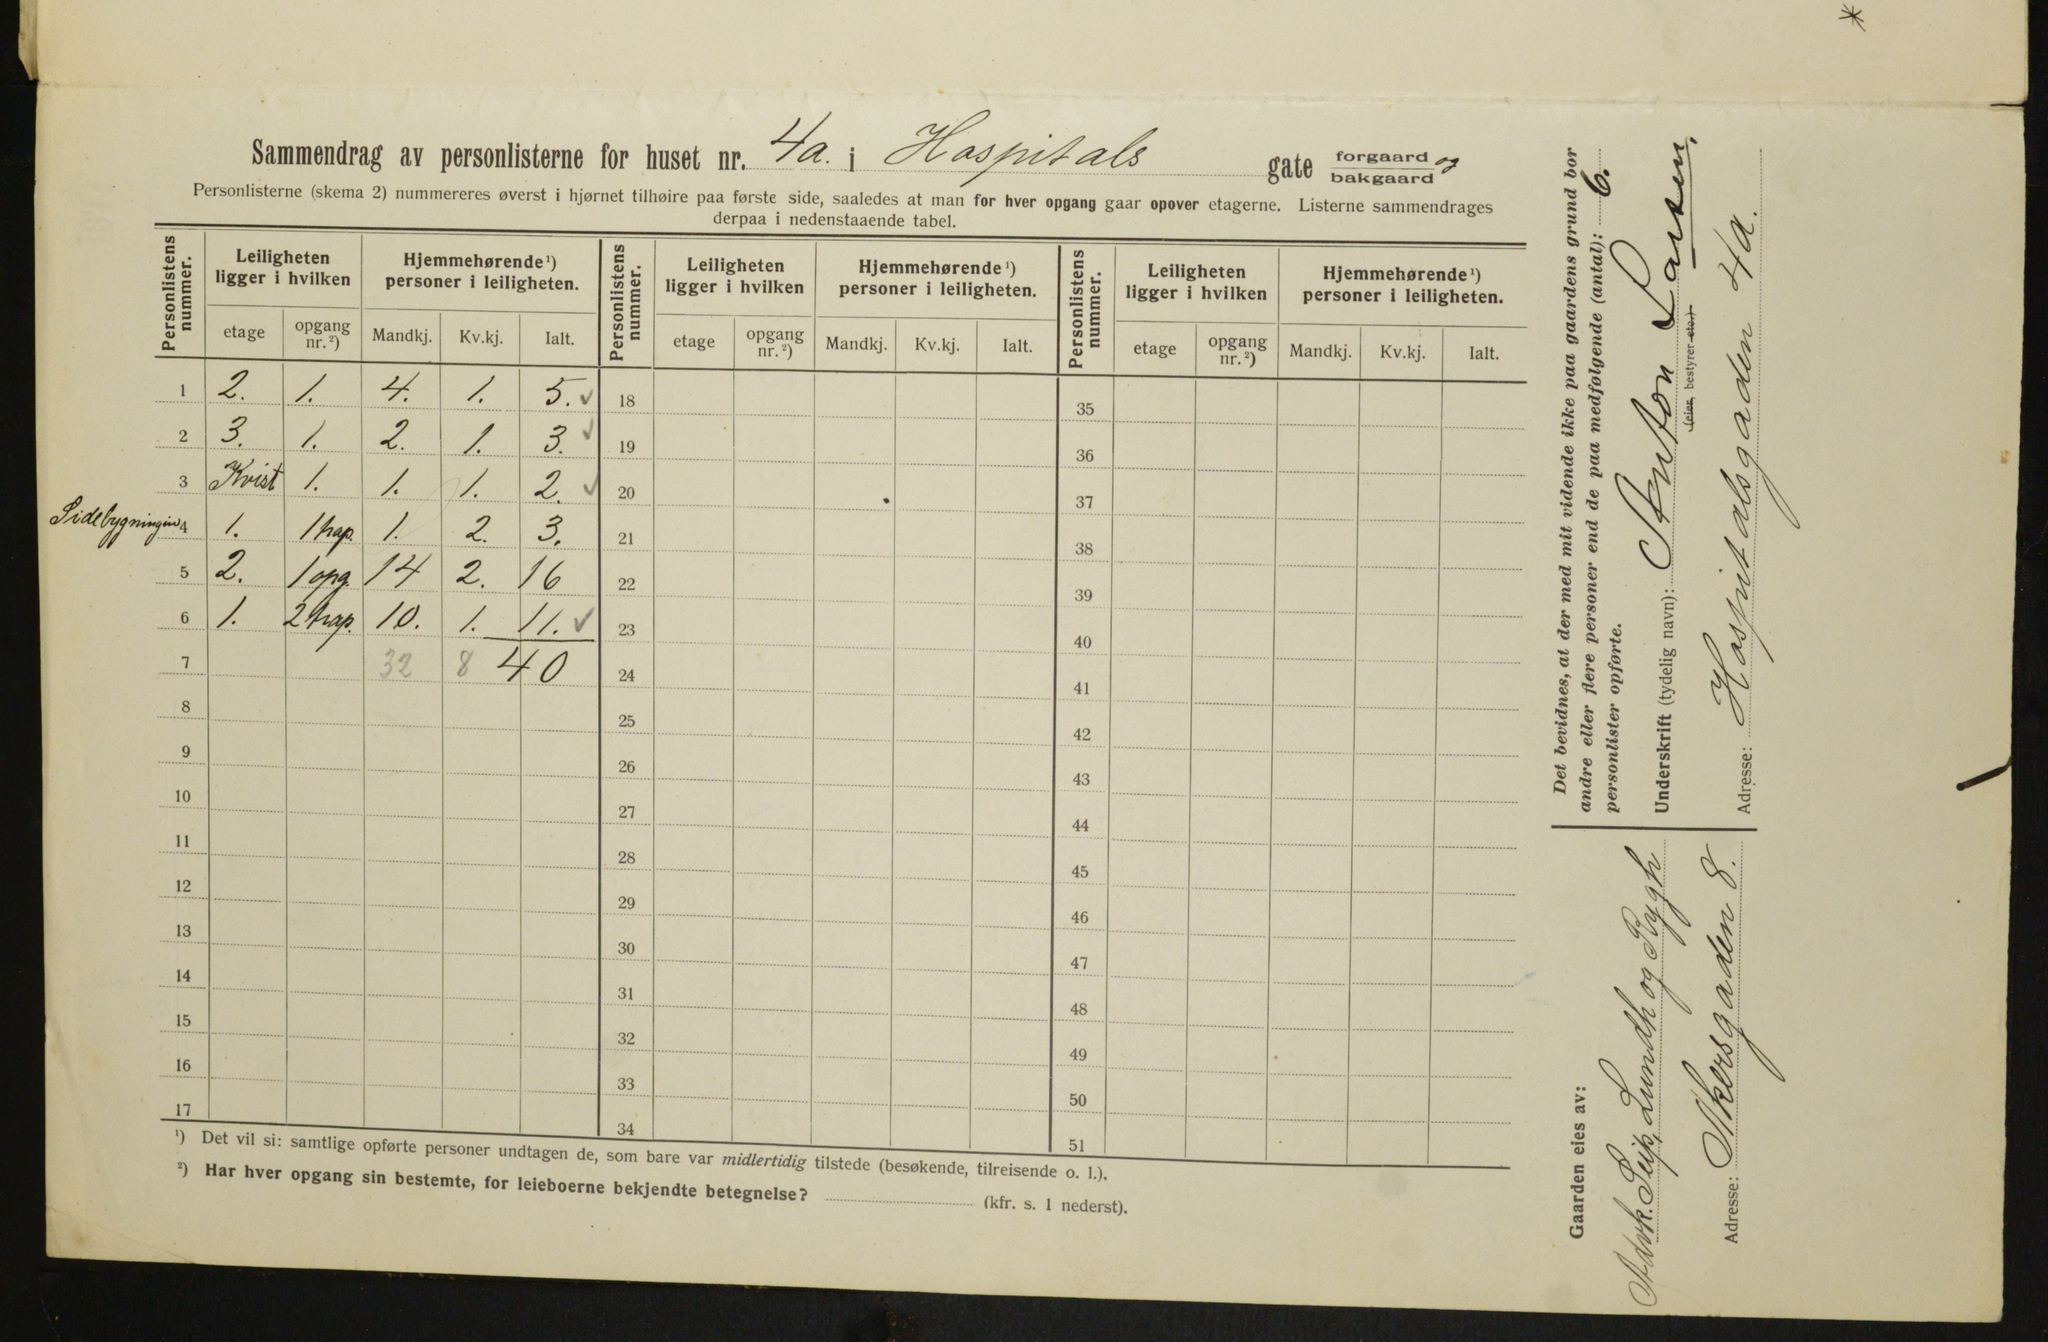 Sammendrag av personlisterne for huset nr. 4a. i Hospitals gate forgaard og bakgaard
Personlisterne (skema 2) nummereres øverst i hjørnet tilhøire paa første side, saaledes at man for hver opgang gaar opover etagerne. Listerne sammendrages
derpaa i nedenstaaende tabel.
Personlistens nummer. Leiligheten ligger i hvilken Hjemmehørende ¹) personer i leiligheten. Personlistens nummer. Leiligheten ligger i hvilken Hjemmehørende ¹) personer i leiligheten. Personlistens nummer. Leiligheten ligger i hvilken Hjemmehørende ¹) personer i leiligheten.
etage opgang nr. ²) Mandkj. Kv.kj. Ialt. etage opgang nr. ²) Mandkj. Kv.kj. Ialt. etage opgang nr. ²) Mandkj. Kv.kj. Ialt.
1 2. 1. 4. 1. 5. ✓ 18 35
2 3. 1. 2. 1. 3. ✓ 19 36
3 Kvist 1. 1. 1. 2. ✓ 20 37
Sidebygningen 4 1. 1 trap. 1. 2. 3. 21 38
5 2. 1 opg. 14 2. 16 22 39
6 1. 2 trap. 10. 1. 11. ✓ 23 40
7 32 8 40 24 41
8 25 42
9 26 43
10 27 44
11 28 45
12 29 46
13 30 47
14 31 48
15 32 49
16 33 50
17 34 51
¹) Det vil si: samtlige opførte personer undtagen de, som bare var midlertidig tilstede (besøkende, tilreisende o. l.).
²) Har hver opgang sin bestemte, for leieboerne bekjendte betegnelse? (kfr. s. 1 nederst).
Det bevidnes, at der med mit vidende ikke paa gaardens grund bor
andre eller flere personer end de paa medfølgende (antal): 6.
personlister opførte.
Underskrift (tydelig navn): Anton Larsen.
(eier, bestyrer etc.)
Adresse: Hospitalsgaden 4a.
Gaarden eies av:
Advk. Seip, Lundh og Rygh
Adresse: Akersgaden 8.